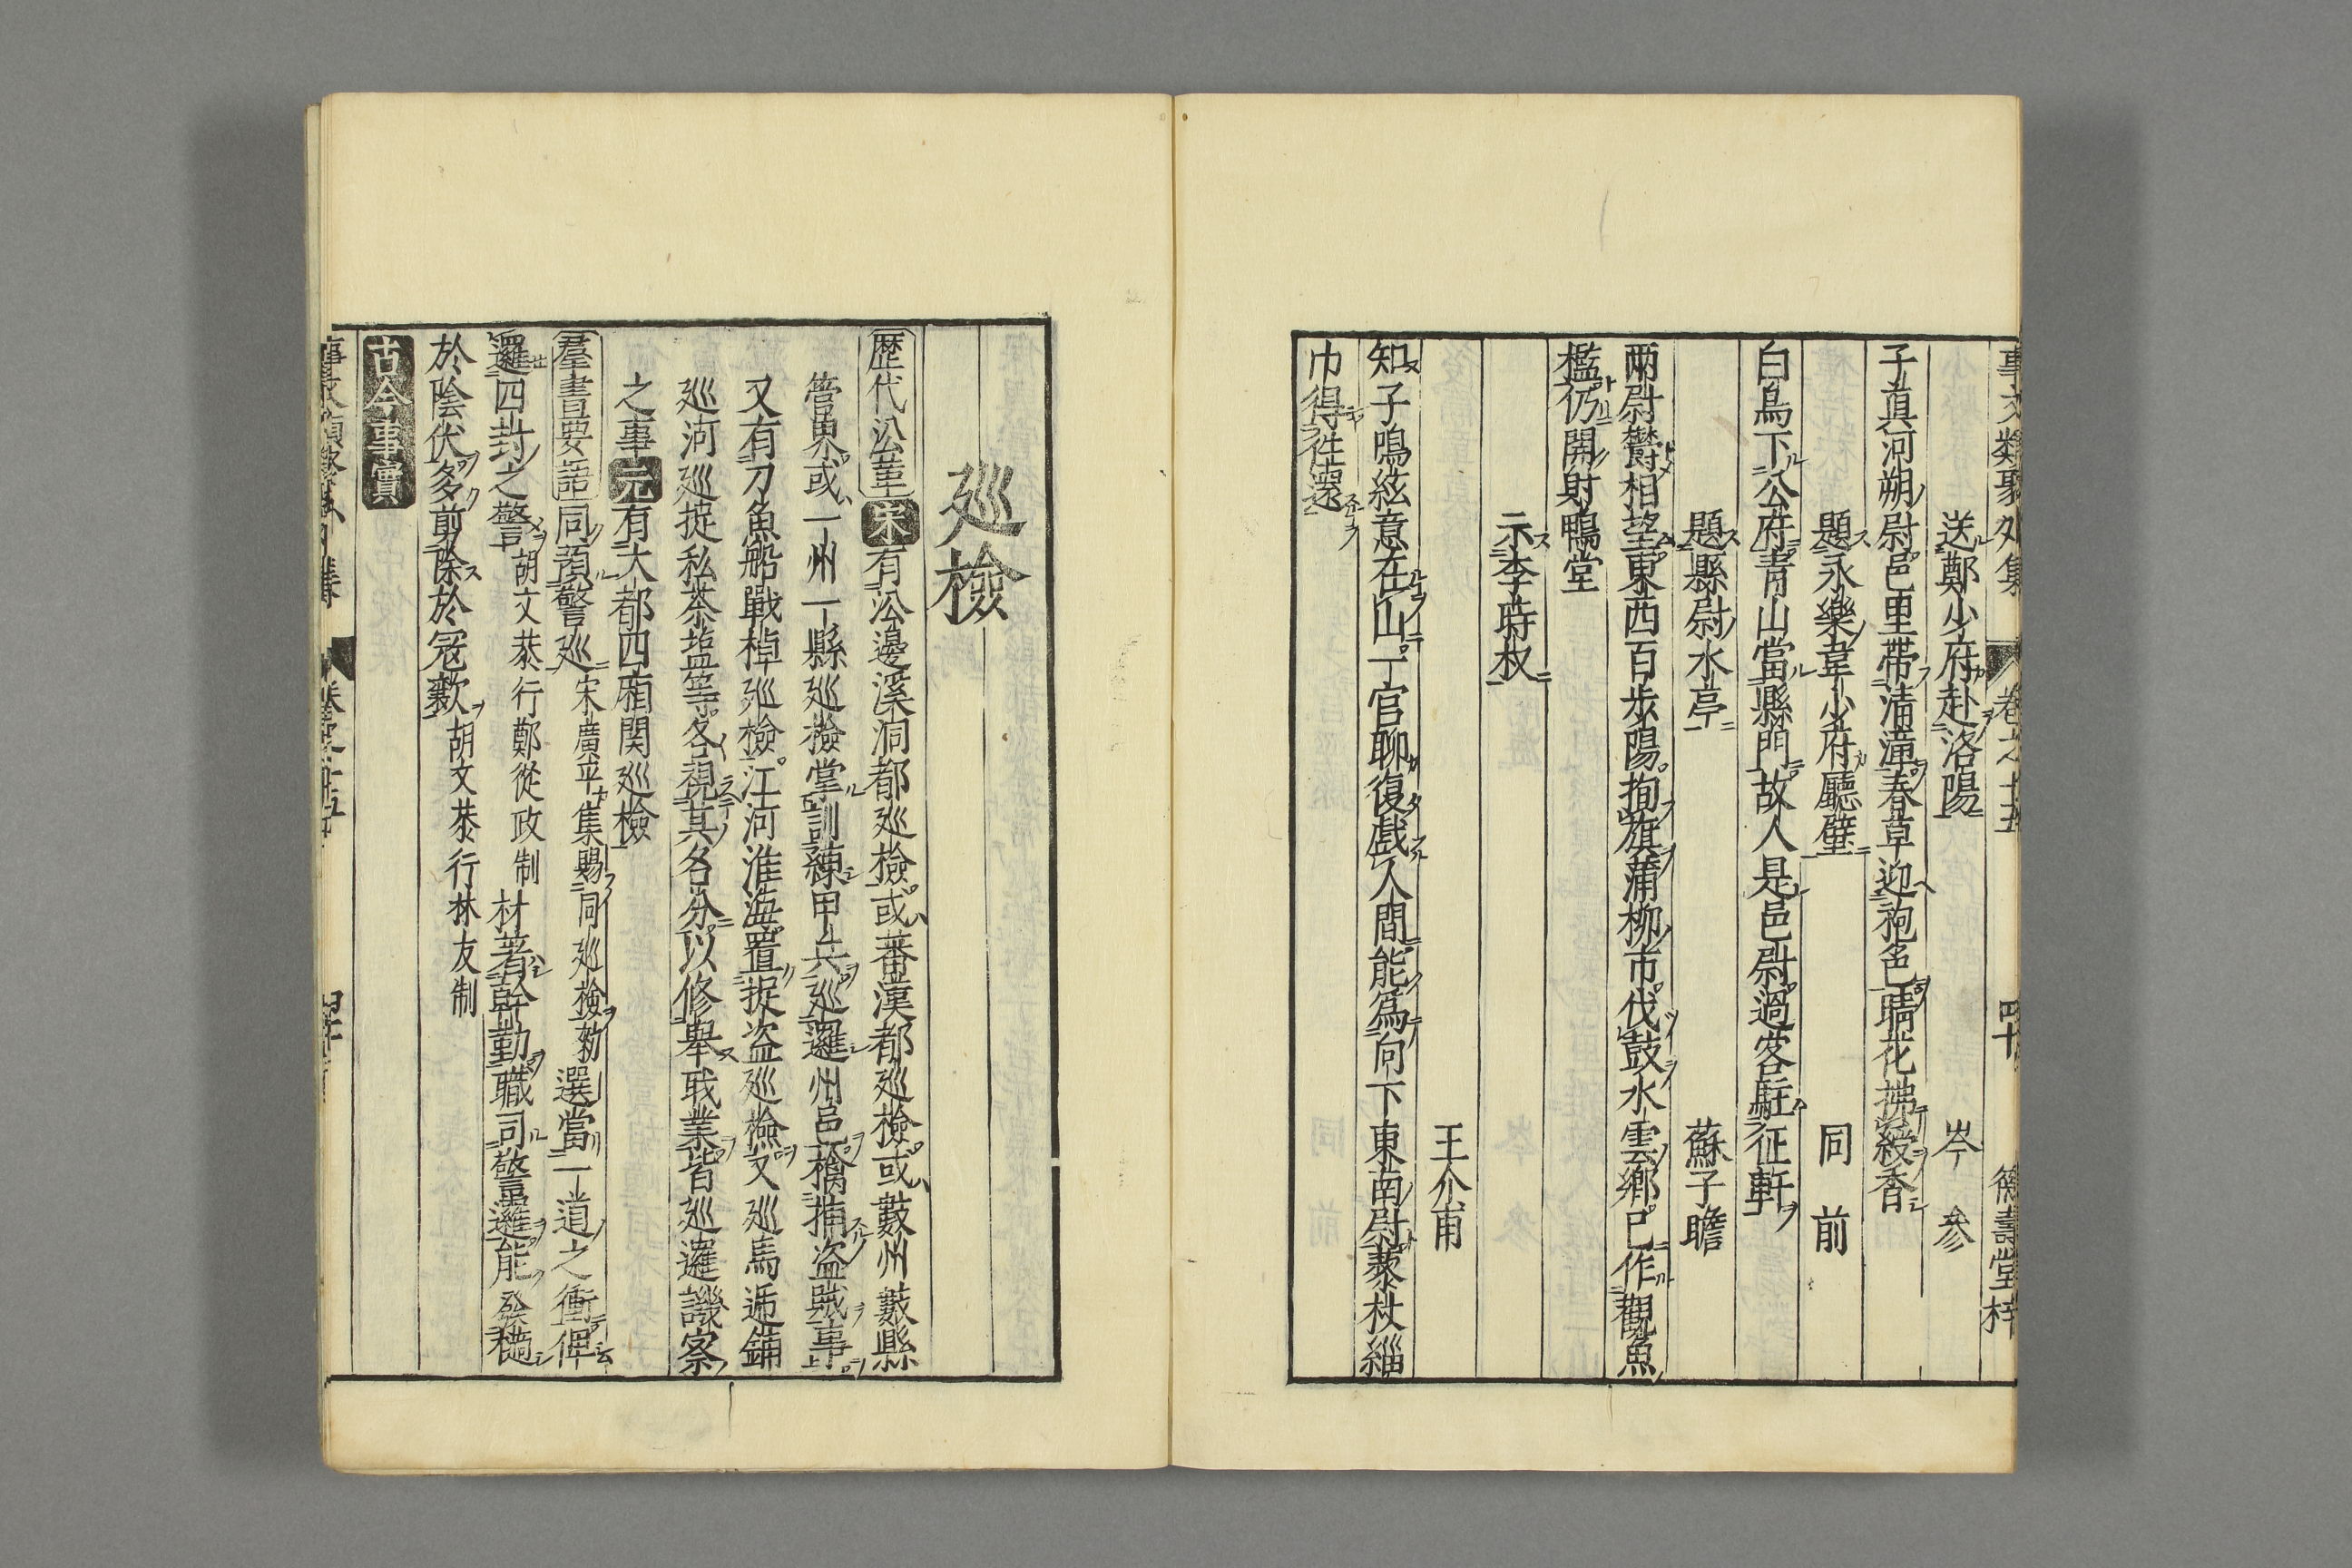 事文類聚外集 卷之十五 四十 德壽堂梓
送鄭少府赴洛陽 岑參
子眞河朔尉邑里帶淸漳春草迎袍色晴花拂綬香
題永樂韋少府廳壁 同前
白鳥下公府靑山當縣門故人是邑尉過客駐征軒
題縣尉水亭 蘇子瞻
兩尉鬱相望東西百步陽揷旗蒲柳市伐鼓水雲鄕已作觀魚
檻仍開射鴨堂
示李時叔 王介甫
知子鳴絃意在山一官聊復戲人間能爲向下東南尉藜杖緇
巾得往還
巡檢
歷代沿革 宋 有沿邊溪洞都巡檢或蕃漢都巡檢或數州數縣
管界或一州一縣巡檢掌訓練甲兵巡邏州邑擒捕盜賊事
又有刀魚船戰棹巡檢江河淮海置捉盜巡檢又巡馬逓鋪
巡河巡捉私茶塩等各視其名分以修舉職業皆巡邏譏察
之事 元 有大都四廂関巡檢
羣書要語 同預警巡宋廣平集賜同巡檢勑選當一道之衝俾
邏四封之警胡文恭行鄭從政制材著幹勤職司警邏能發擿
於陰伏多剪除於寇歎胡文恭行林友制
古今事實